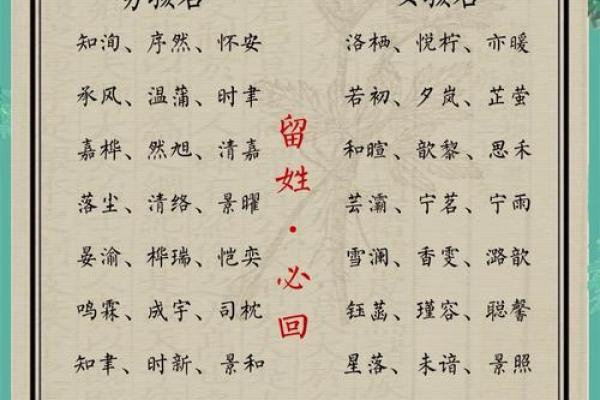 男孩名
知洵、序然、怀安
承风、温蒲、时聿
嘉桦、然旭、清嘉
落尘、清络、景曜
晏渝、桦瑞、恺奕
鸣霖、成宇、司枕
知聿、时新、景和
留姓·必回
女孩名
洛栖、悦柠、亦暖
若初、夕岚、芷萤
和暄、歆黎、思禾
芸灞、宁茗、宁雨
雪澜、香雯、潞歆
钰菡、瑾容、聪馨
星落、未谙、景照